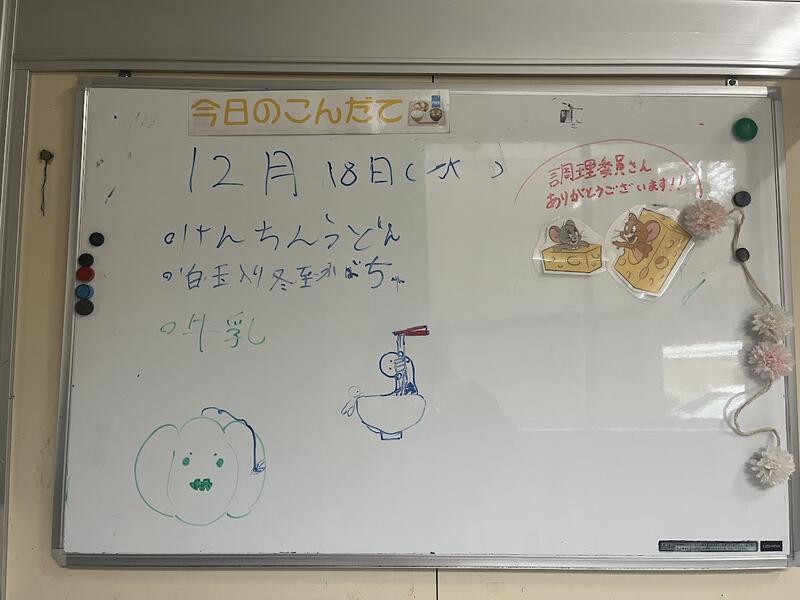 今日のこんだて
12月18日(水)
調理委員さん
ありがとうございます!!
○けんちんうどん
○白玉入り冬至かぼちゃ
○牛乳